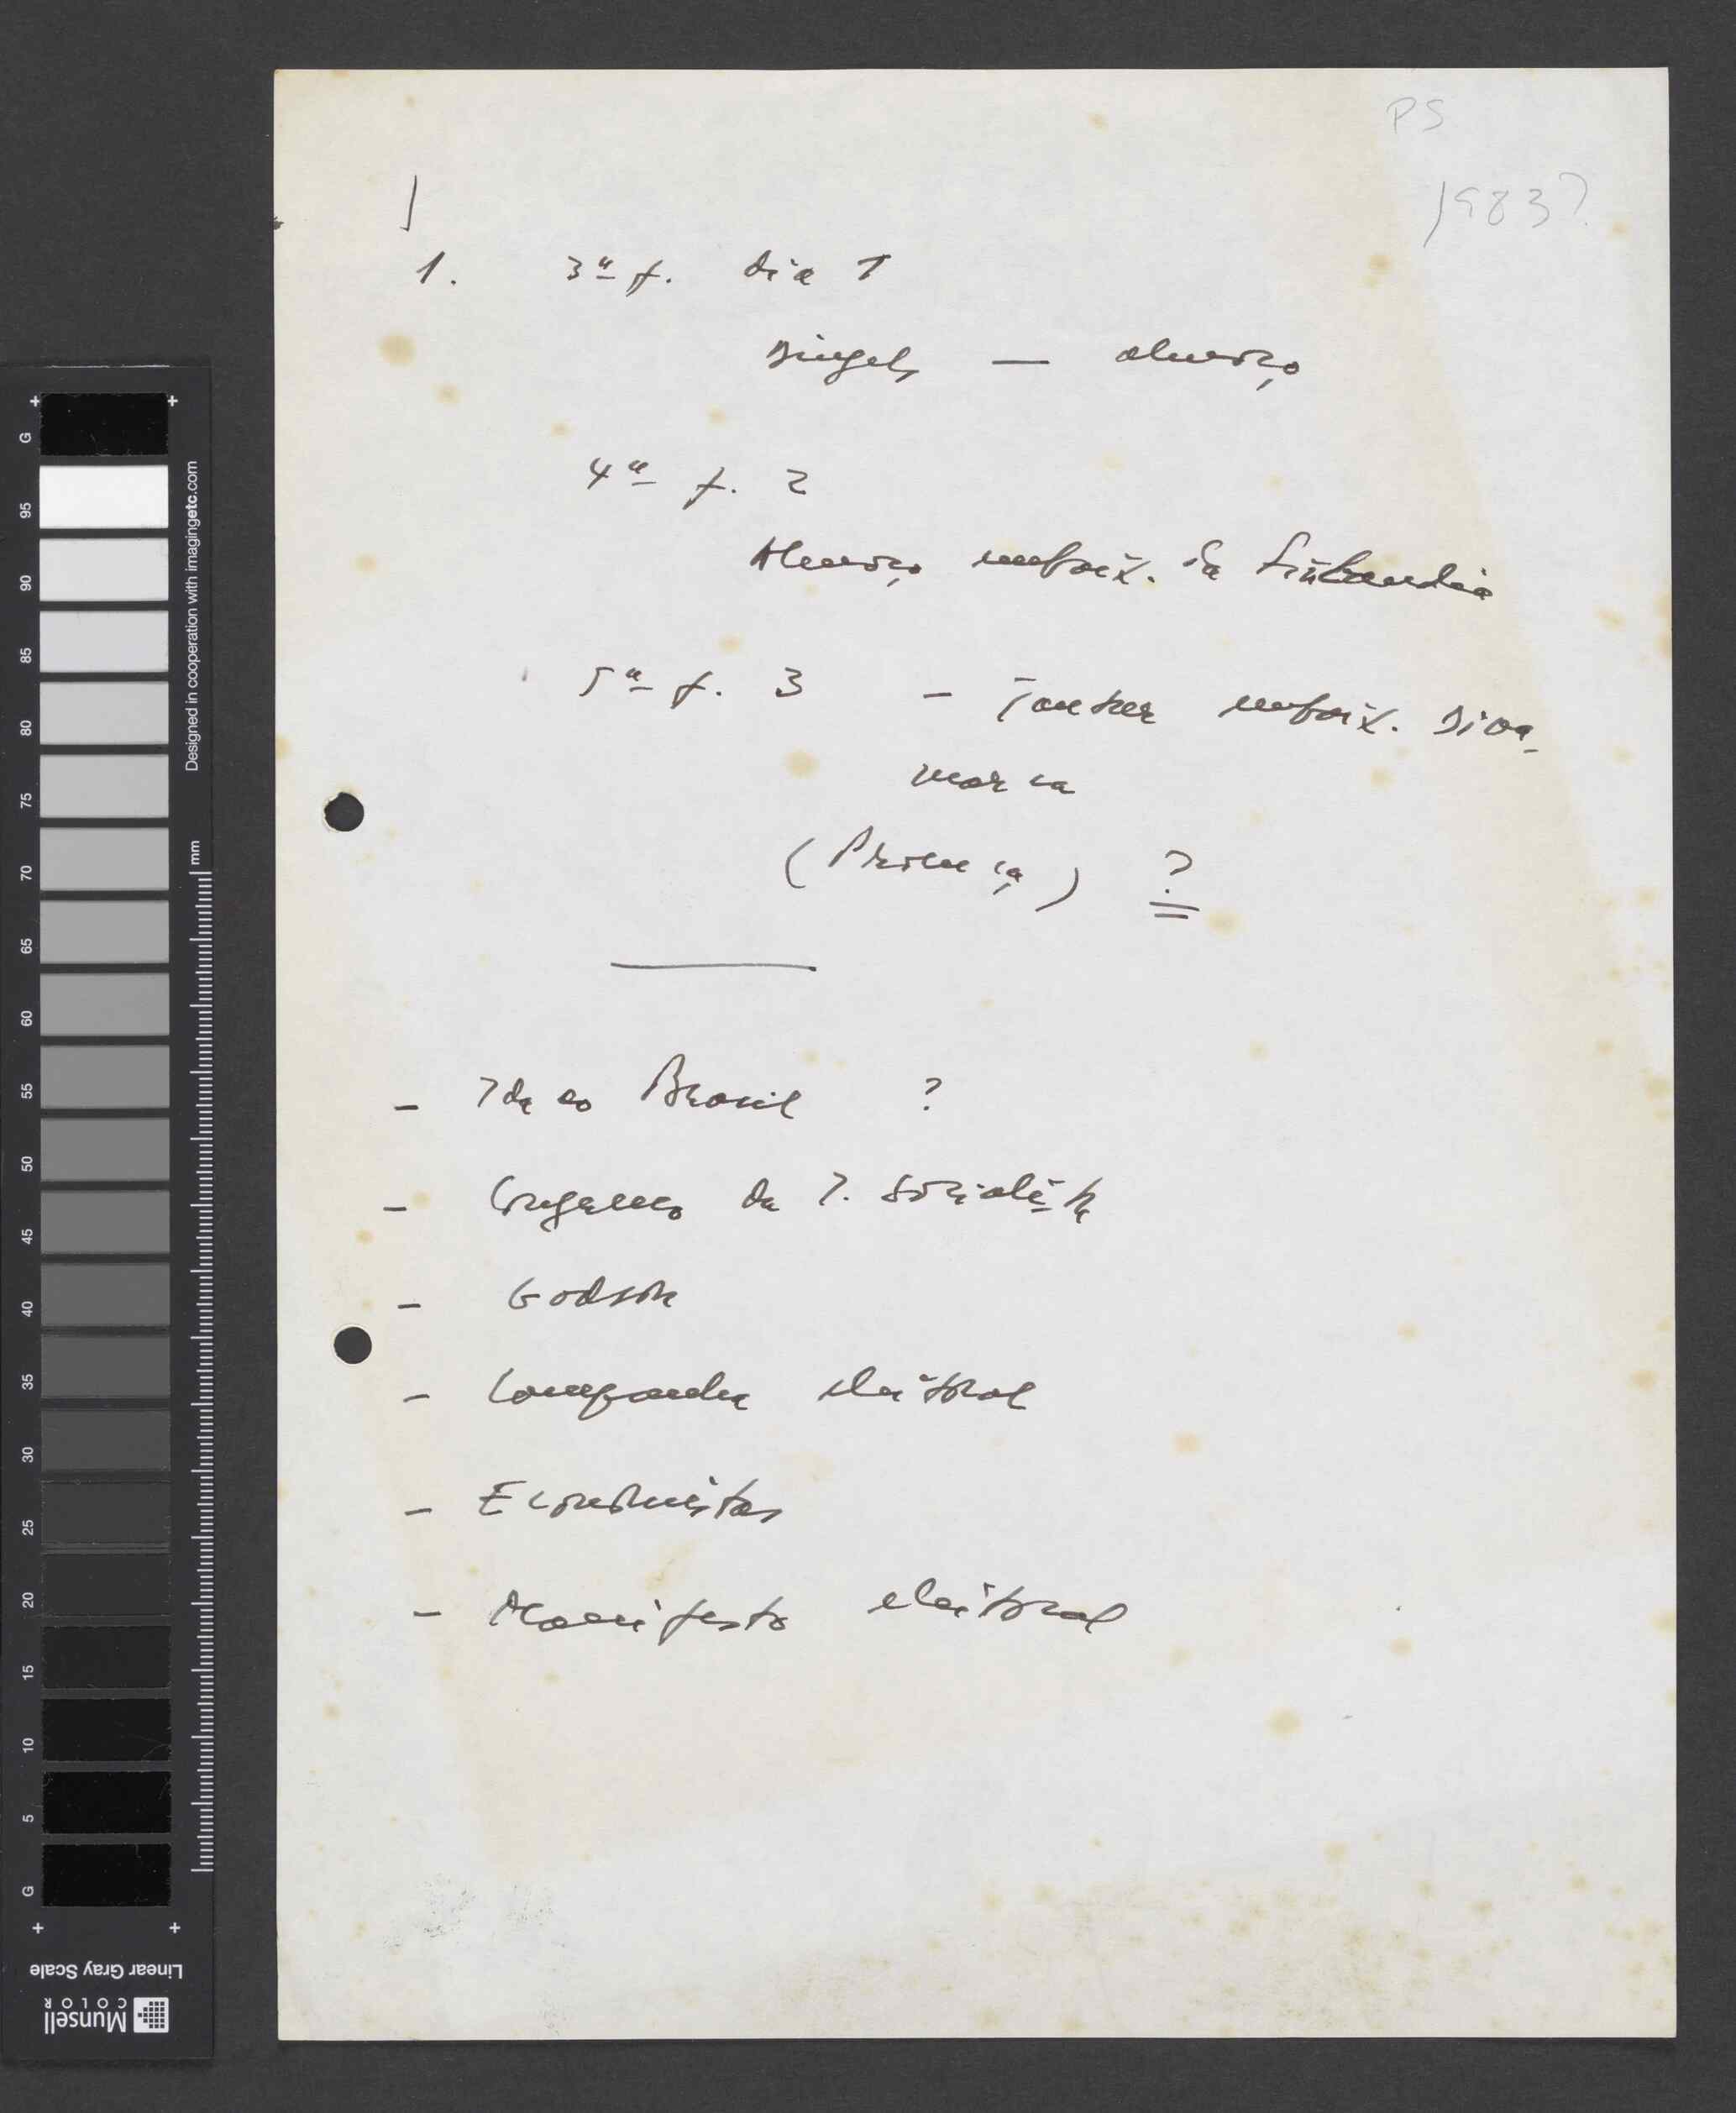 PS
1983?
1. 3ª f. dia 1
Dingels — almoço
4ª f. 2
Almoço embaix. da Finlandia
5ª f. 3 - Jantar embaix. Dina-
marca
(Proença) ?
- Ida ao Brasil ?
- Congresso da I. Socialista
- Godson
- Campanha eleitoral
- Economistas
- Manifesto eleitoral
G
95
90
85
80
75
70
65
60
55
50
45
40
35
30
25
20
15
10
5
G
Designed in cooperation with imagingetc.com
mm
Linear Gray Scale
Munsell
COLOR